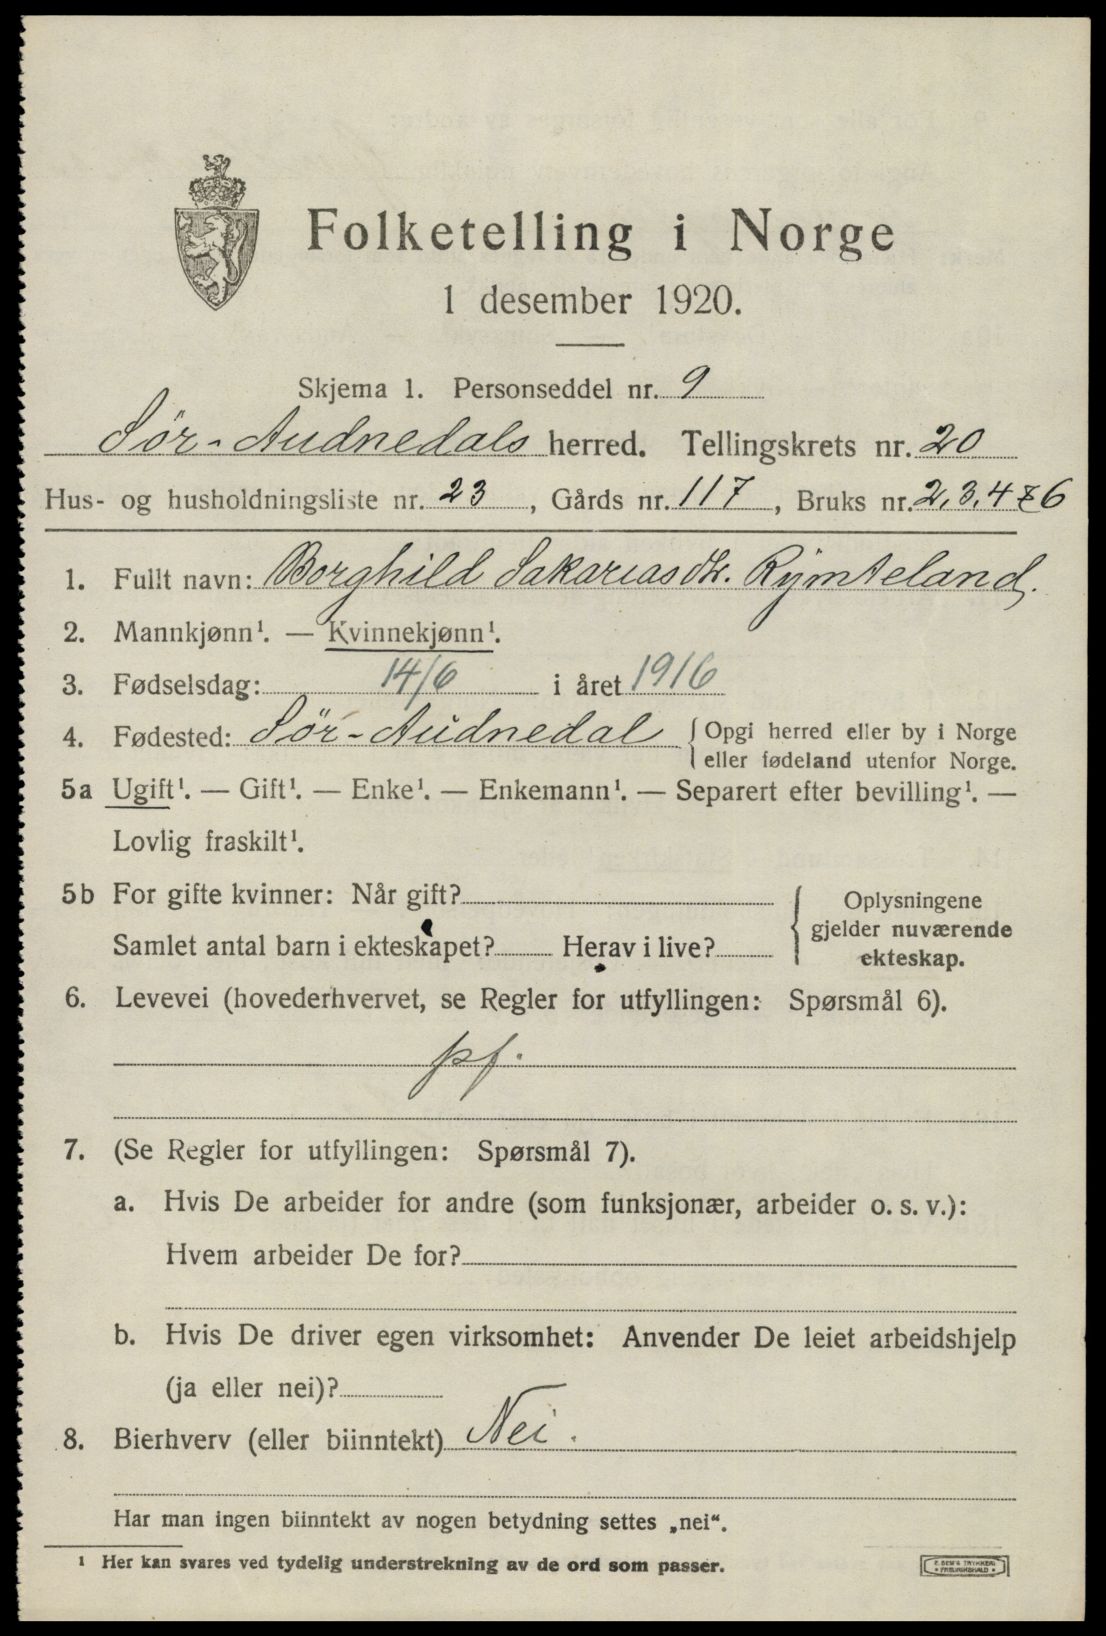 Folketelling i Norge
1 desember 1920.
Skjema 1. Personseddel nr. 9
Sør-Audnedals herred. Tellingskrets nr. 20
Hus- og husholdningsliste nr. 23, Gårds nr. 117, Bruks nr. 2, 3, 4 & 6
1. Fullt navn: Borghild Sakariasdtr. Rymteland.
2. Mannkjønn¹. — Kvinnekjønn¹.
3. Fødselsdag: 14/6 i året 1916
4. Fødested: Sør-Audnedal { Opgi herred eller by i Norge
eller fødeland utenfor Norge.
5a Ugift¹. — Gift¹. — Enke¹. — Enkemann¹. — Separert efter bevilling¹. —
Lovlig fraskilt¹.
5b For gifte kvinner: Når gift?
Samlet antal barn i ekteskapet? Herav i live?
{ Oplysningene
gjelder nuværende
ekteskap.
6. Levevei (hovederhvervet, se Regler for utfyllingen: Spørsmål 6).
pf.
7. (Se Regler for utfyllingen: Spørsmål 7).
a. Hvis De arbeider for andre (som funksjonær, arbeider o. s. v.):
Hvem arbeider De for?
b. Hvis De driver egen virksomhet: Anvender De leiet arbeidshjelp
(ja eller nei)?
8. Bierhverv (eller biinntekt) Nei.
Har man ingen biinntekt av nogen betydning settes „nei“.
¹ Her kan svares ved tydelig understrekning av de ord som passer.